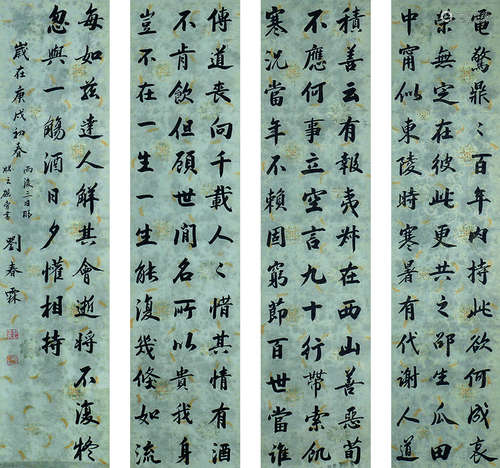 電驚鼎〻百年內持此欲何成衰
榮無定在彼此更共之邵生瓜田
中甯似東陵時寒暑有代謝人道
積善云有報夷叔在西山善惡苟
不應何事立空言九十行帶索飢
寒況當年不賴固窮節百世當誰
傳道喪向千載人〻惜其情有酒
不肯飲但顧世間名所以貴我身
豈不在一生一生能復幾倏如流
每如茲達人解其會逝將不復疑
忽與一觴酒日夕懽相持
歲在庚戌初春
劉春霖